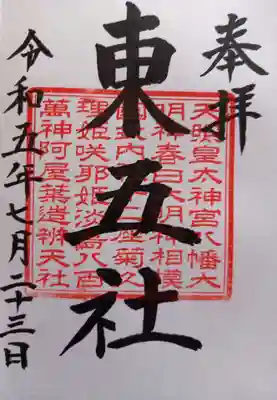 奉拝
東五社
令和五年七月二十三日
天照皇大神宮八幡大
明神春日大明神相模
國式内十三座菊久
理姫咲耶姫淡嶌八百
萬神阿屋葉造辨天社